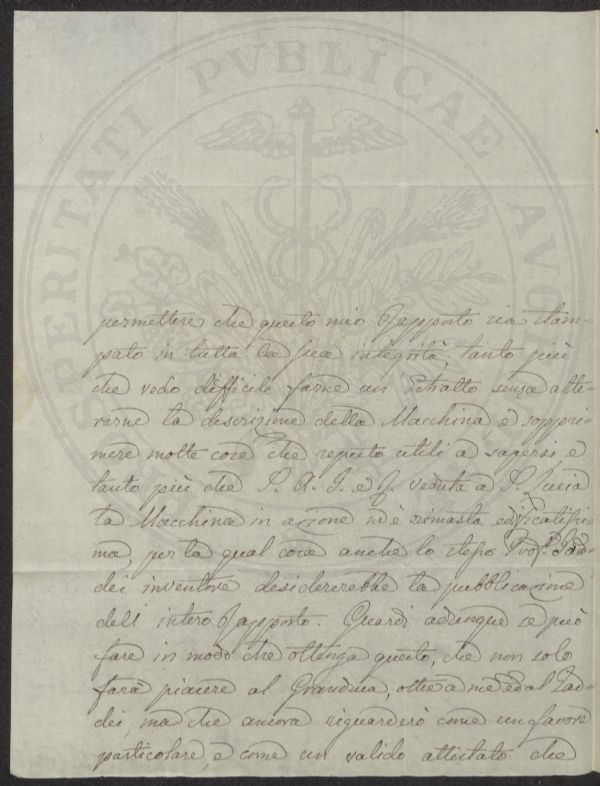 PROSPERITATI PVBLICAE
permettere che questo mio Rapporto sia stam=
pato in tutta la sua integrità, tanto più
che vedo difficile farne un estratto senza alte=
rarne la descrizione della Macchina, e soppri=
mere molte cose che reputo utili a sapersi e
tanto più che S. A. I. e R. veduta a S. Lucia
la Macchina in azione n'è rimasta edificatissi=
ma, per la qual cosa anche lo stesso Prof. Tad=
dei inventore desidererebbe la pubblicazione
dell intero Rapporto. Guardi adunque se può
fare in modo che ottenga questo, che non solo
farà piacere al Granduca, oltre a me ed al Tad=
dei, ma che ancora riguarderò come un favore
particolare, e come un valido attestato che